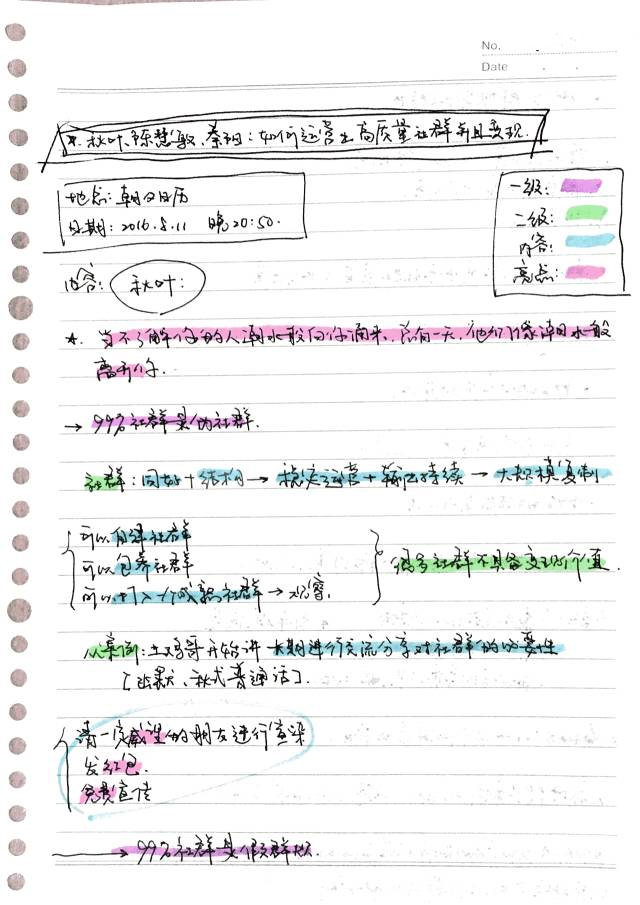 No.
Date
*. 秋叶、陈慧敏、秦阳:如何运营出高质量社群并且变现.
地点:朝夕日历
日期:2016.8.11 晚20:50.
一级:
二级:
内容:
亮点:
内容: 秋叶:
*. 当不了解你的人潮水般向你涌来、总有一天,他们像潮水一般
离开你.
→ 99%社群是伪社群.
社群:同好+结构→稳定运营+输出持续→大规模复制
可以自建社群
可以包养社群
可以打入一个成熟社群→观察.
很多社群不具备变现价值.
从案例:土鸡哥开始讲 长期进行交流分享对社群的必要性
[幽默、秋式普通话].
请一定威望的朋友进行渲染
发红包.
免费宣传
→ 99%社群是假群